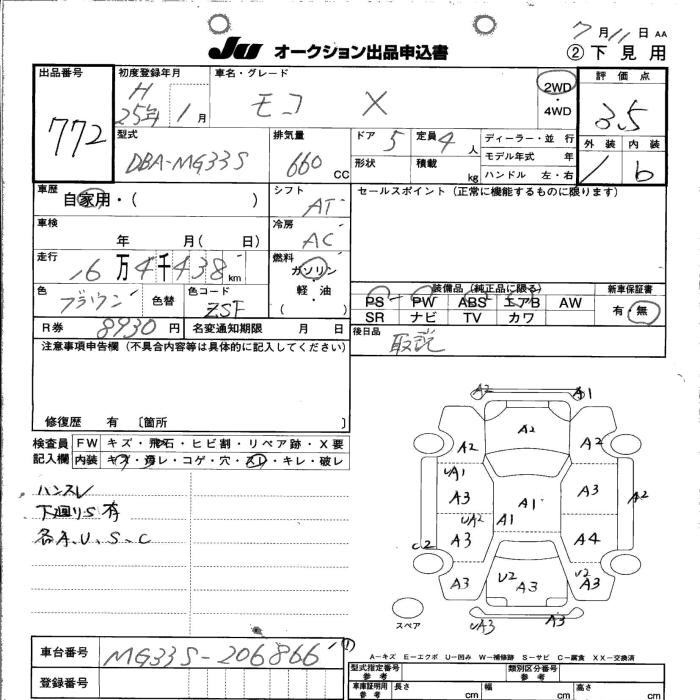 7月11日 AA
JU オークション出品申込書 ②下見用
出品番号 初度登録年月 車名・グレード 評価点
772 H 25年 1月 モコ X 2WD・4WD 3.5
型式 排気量 ドア 5 定員 4人 ディーラー・並行 外装 内装
DBA-MG33S 660 CC 形状 積載 kg モデル年式 年
ハンドル 左・右 1 b
車歴 自家用・( ) シフト AT セールスポイント(正常に機能するものに限ります)
車検 年 月( 日) 冷房 AC
走行 16万4千438km 燃料 ガソリン・軽・油 ( )
色 ブラウン 色替 色コード ZSF
装備品(純正品に限る) 新車保証書
PS PW ABS エアB AW 有・無
SR ナビ TV カワ
R券 8930円 名変通知期限 月 日 後日品 取説
注意事項申告欄(不具合内容等は具体的に記入してください)
修復歴 有 〔箇所 〕
検査員記入欄 FW キズ・飛石・ヒビ割・リペア跡・X要
内装 キズ・汚レ・コゲ・穴・スレ・キレ・破レ
ハンスレ
下廻りS有
各A、U、S、C
A2 A1
A2 A2 A2
UA1
A3 A1 A3 A2
UA2 A1
A3 A4
U2
A3 U2 A3 U2 A3
スペア UA3 A3
A-キズ E-エクボ U-凹み W-補修跡 S-サビ C-腐食 XX-交換済
車台番号 MG33S-206866 ①
登録番号
型式指定番号 参考 類別区分番号 参考
車庫証明用 参考 長さ cm 幅 cm 高さ cm